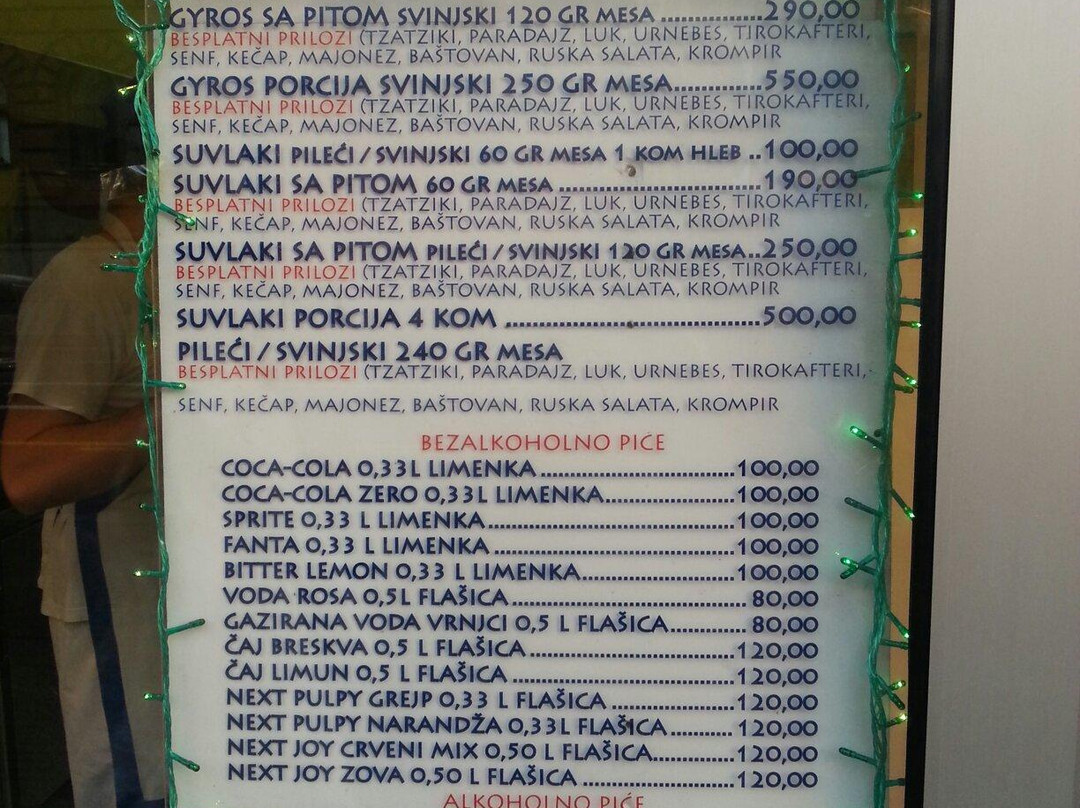 GYROS SA PITOM SVINJSKI 120 GR MESA ...................290,00
BESPLATNI PRILOZI (TZATZIKI, PARADAJZ, LUK, URNEBES, TIROKAFTERI,
SENF, KEČAP, MAJONEZ, BAŠTOVAN, RUSKA SALATA, KROMPIR
GYROS PORCIJA SVINJSKI 250 GR MESA...............550,00
BESPLATNI PRILOZI (TZATZIKI, PARADAJZ, LUK, URNEBES, TIROKAFTERI,
SENF, KEČAP, MAJONEZ, BAŠTOVAN, RUSKA SALATA, KROMPIR
SUVLAKI PILEĆI / SVINJSKI 60 GR MESA 1 KOM HLEB ..100,00
SUVLAKI SA PITOM 60 GR MESA ...................................190,00
BESPLATNI PRILOZI (TZATZIKI, PARADAJZ, LUK, URNEBES, TIROKAFTERI,
SENF, KEČAP, MAJONEZ, BAŠTOVAN, RUSKA SALATA, KROMPIR
SUVLAKI SA PITOM PILEĆI / SVINJSKI 120 GR MESA..250,00
BESPLATNI PRILOZI (TZATZIKI, PARADAJZ, LUK, URNEBES, TIROKAFTERI,
SENF, KEČAP, MAJONEZ, BAŠTOVAN, RUSKA SALATA, KROMPIR
SUVLAKI PORCIJA 4 KOM ............................................500,00
PILEĆI / SVINJSKI 240 GR MESA
BESPLATNI PRILOZI (TZATZIKI, PARADAJZ, LUK, URNEBES, TIROKAFTERI,
SENF, KEČAP, MAJONEZ, BAŠTOVAN, RUSKA SALATA, KROMPIR
BEZALKOHOLNO PIĆE
COCA-COLA 0,33L LIMENKA.................................100,00
COCA-COLA ZERO 0,33L LIMENKA......................100,00
SPRITE 0,33 L LIMENKA..........................................100,00
FANTA 0,33 L LIMENKA .........................................100,00
BITTER LEMON 0,33 L LIMENKA..........................100,00
VODA ROSA 0,5L FLAŠICA ........................................ 80,00
GAZIRANA VODA VRNJCI 0,5 L FLAŠICA............. 80,00
ČAJ BRESKVA 0,5 L FLAŠICA...................................120,00
ČAJ LIMUN 0,5 L FLAŠICA ......................................120,00
NEXT PULPY GREJP 0,33 L FLAŠICA .....................120,00
NEXT PULPY NARANDŽA 0,33L FLAŠICA............120,00
NEXT JOY CRVENI MIX 0,50L FLAŠICA..............120,00
NEXT JOY ZOVA 0,50L FLAŠICA .........................120,00
ALKOHOLNO PIĆE